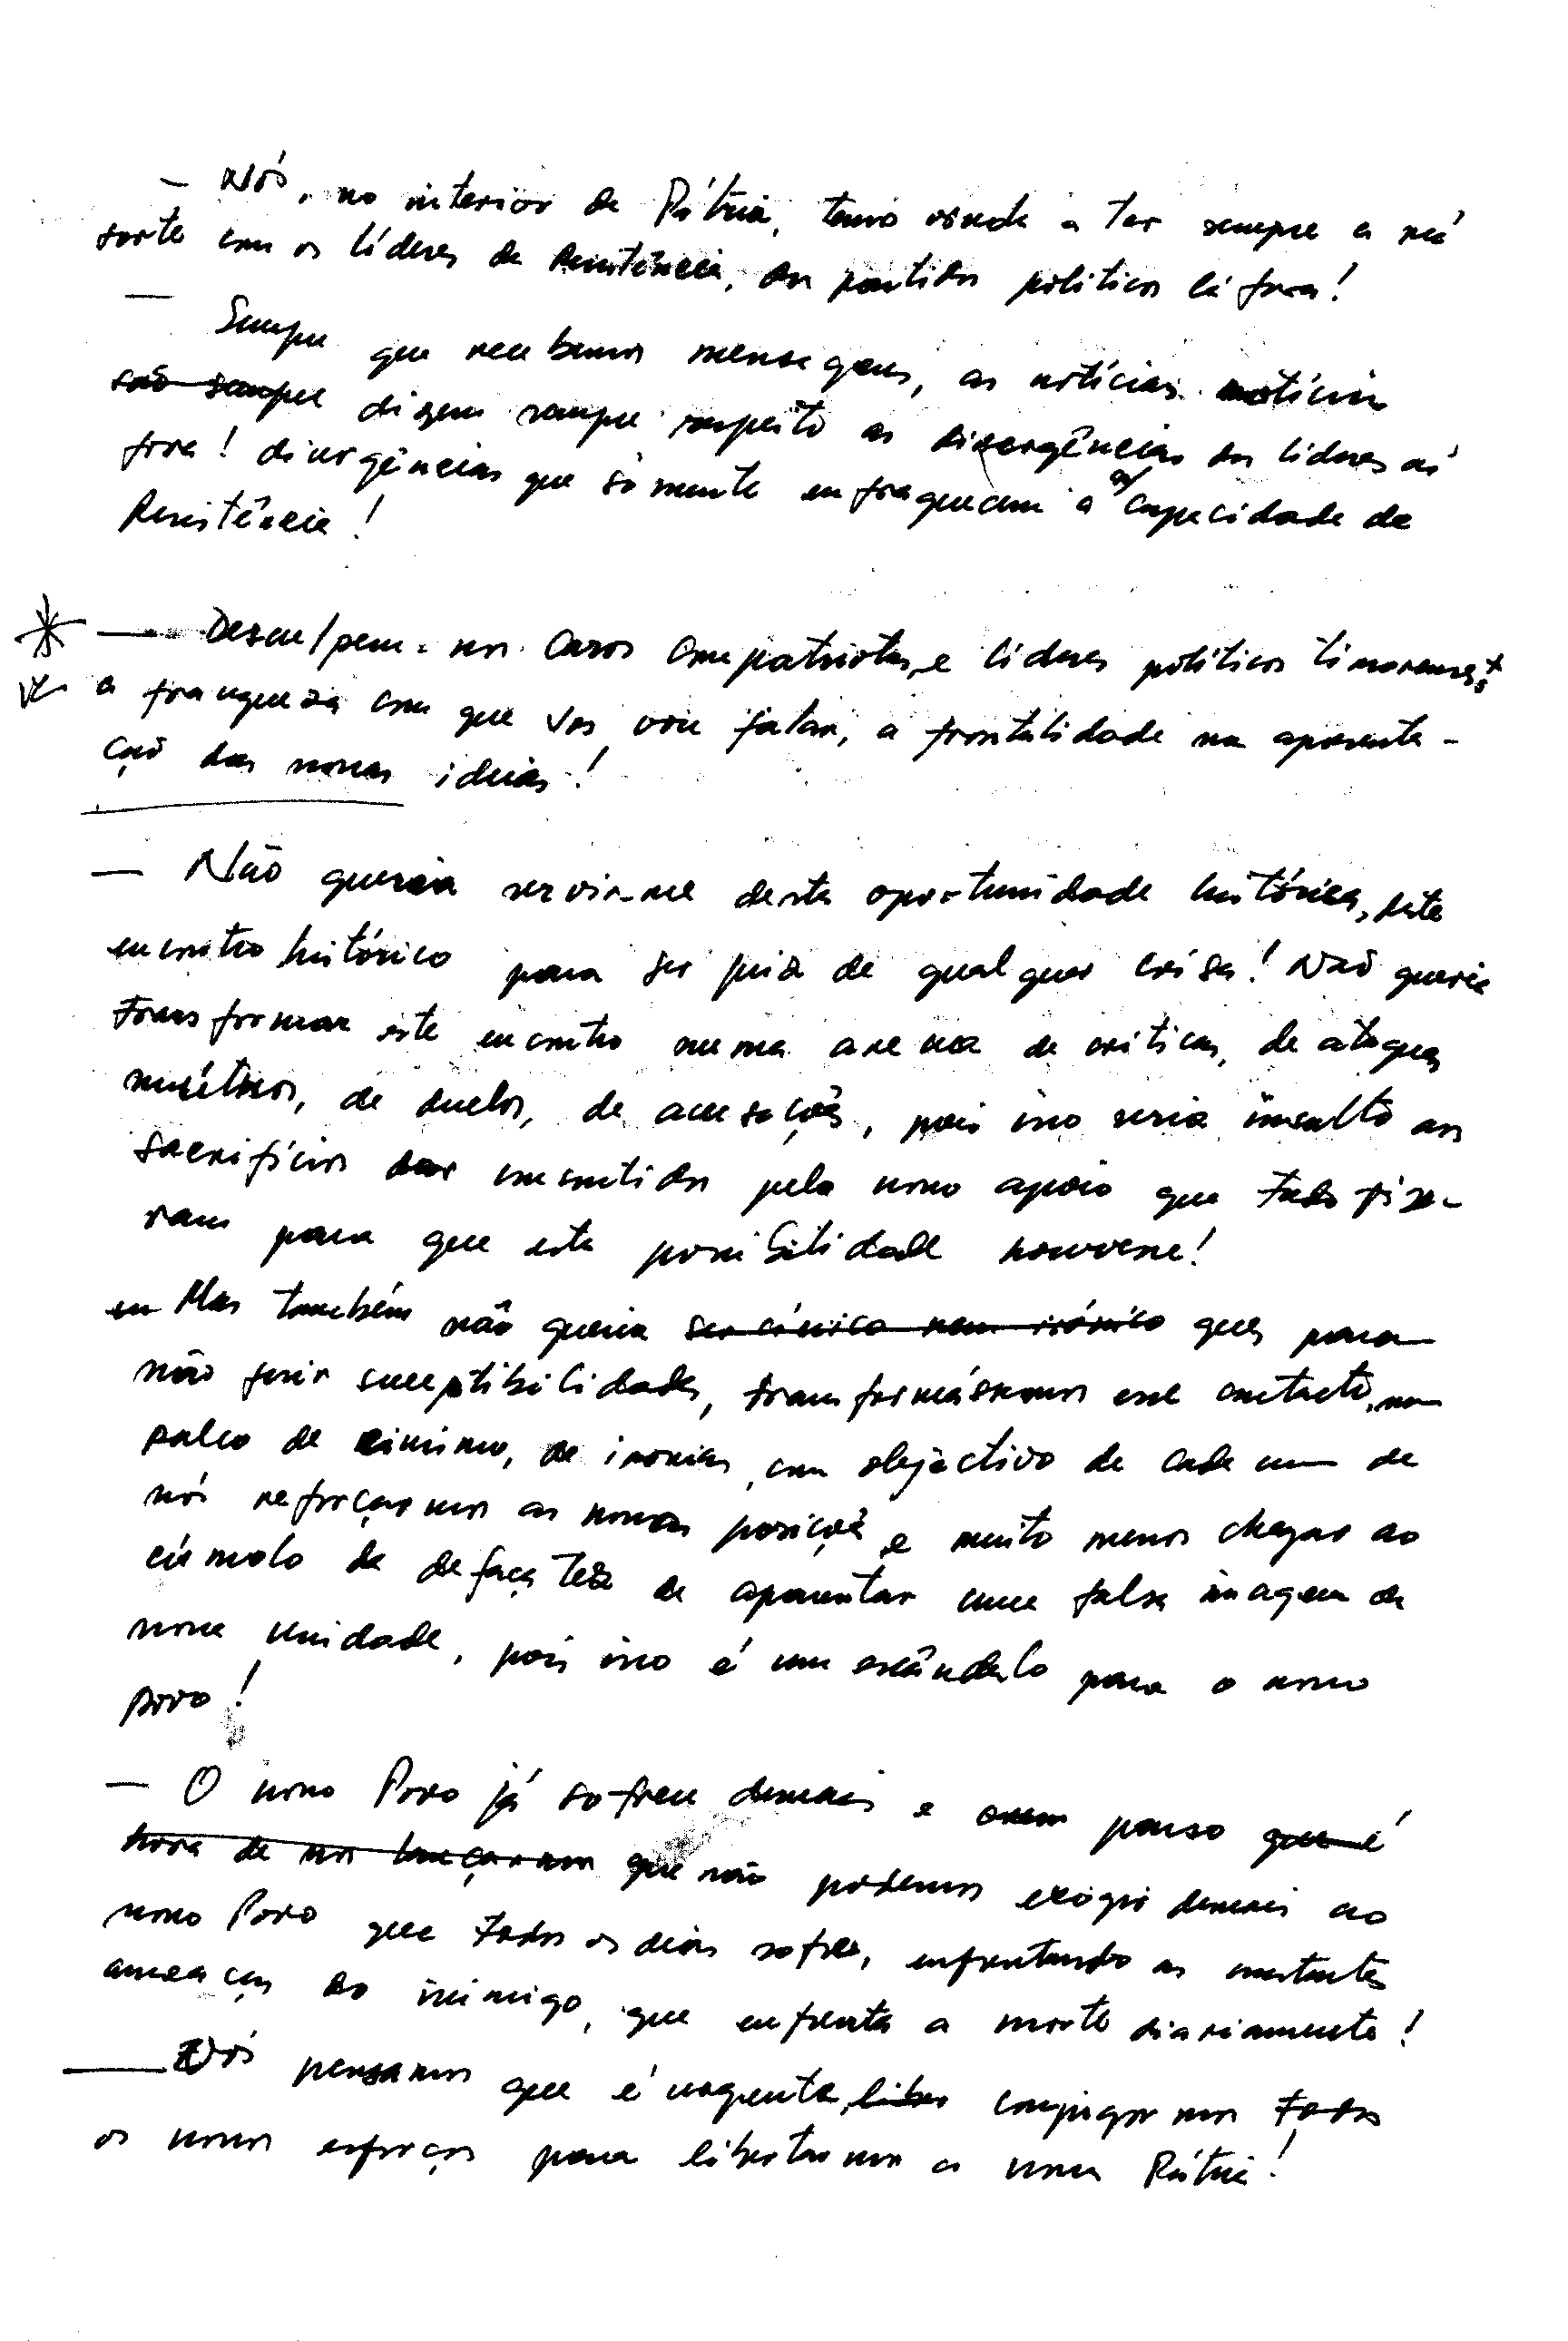 — Nós, no interior da Pátria, temos estado a ter sempre a má
sorte com os líderes da Resistência, dos partidos políticos lá fora!
— Sempre que recebemos mensagens, as notícias notícias
são sempre dizem sempre respeito as divergências dos líderes aí
fora! divergências que sòmente enfraquecem a capacidade de
Resistência!
— Desculpem-nos caros compatriotas e líderes políticos timorenses
a franqueza com que vos vou falar, a frontalidade na apresenta-
ção das nossas ideias!
— Não queria servir-me desta oportunidade histórica, deste
encontro histórico para ser juiz de qualquer coisa! Não queria
transformar este encontro numa arena de críticas, de ataques
mútuos, de duelos, de acusações, pois isso seria insulto aos
sacrifícios consentidos pelo nosso apoio que todos fize-
ram para que esta possibilidade houvesse!
Mas também não queria ser cínico nem irónico que, para
não ferir susceptibilidades, transformássemos esse contacto, num
palco de cinismo, de ironias, com objectivo de cada um de
nós reforçarmos as nossas posições e muito menos chegar ao
cúmulo da defaçatez de aparentar uma falsa imagem de
nossa unidade, pois isso é um escândalo para o nosso
povo!
— O nosso Povo já sofreu demais e penso que é
hora de nos lançarmos que não podemos exigir demais ao
nosso Povo que todos os dias sofre, enfrentando as constantes
ameaças do inimigo, que enfrenta a morte diariamente!
— Nós pensamos que é urgente, conjugarmos todos
os nossos esforços para libertarmos a nossa Pátria!